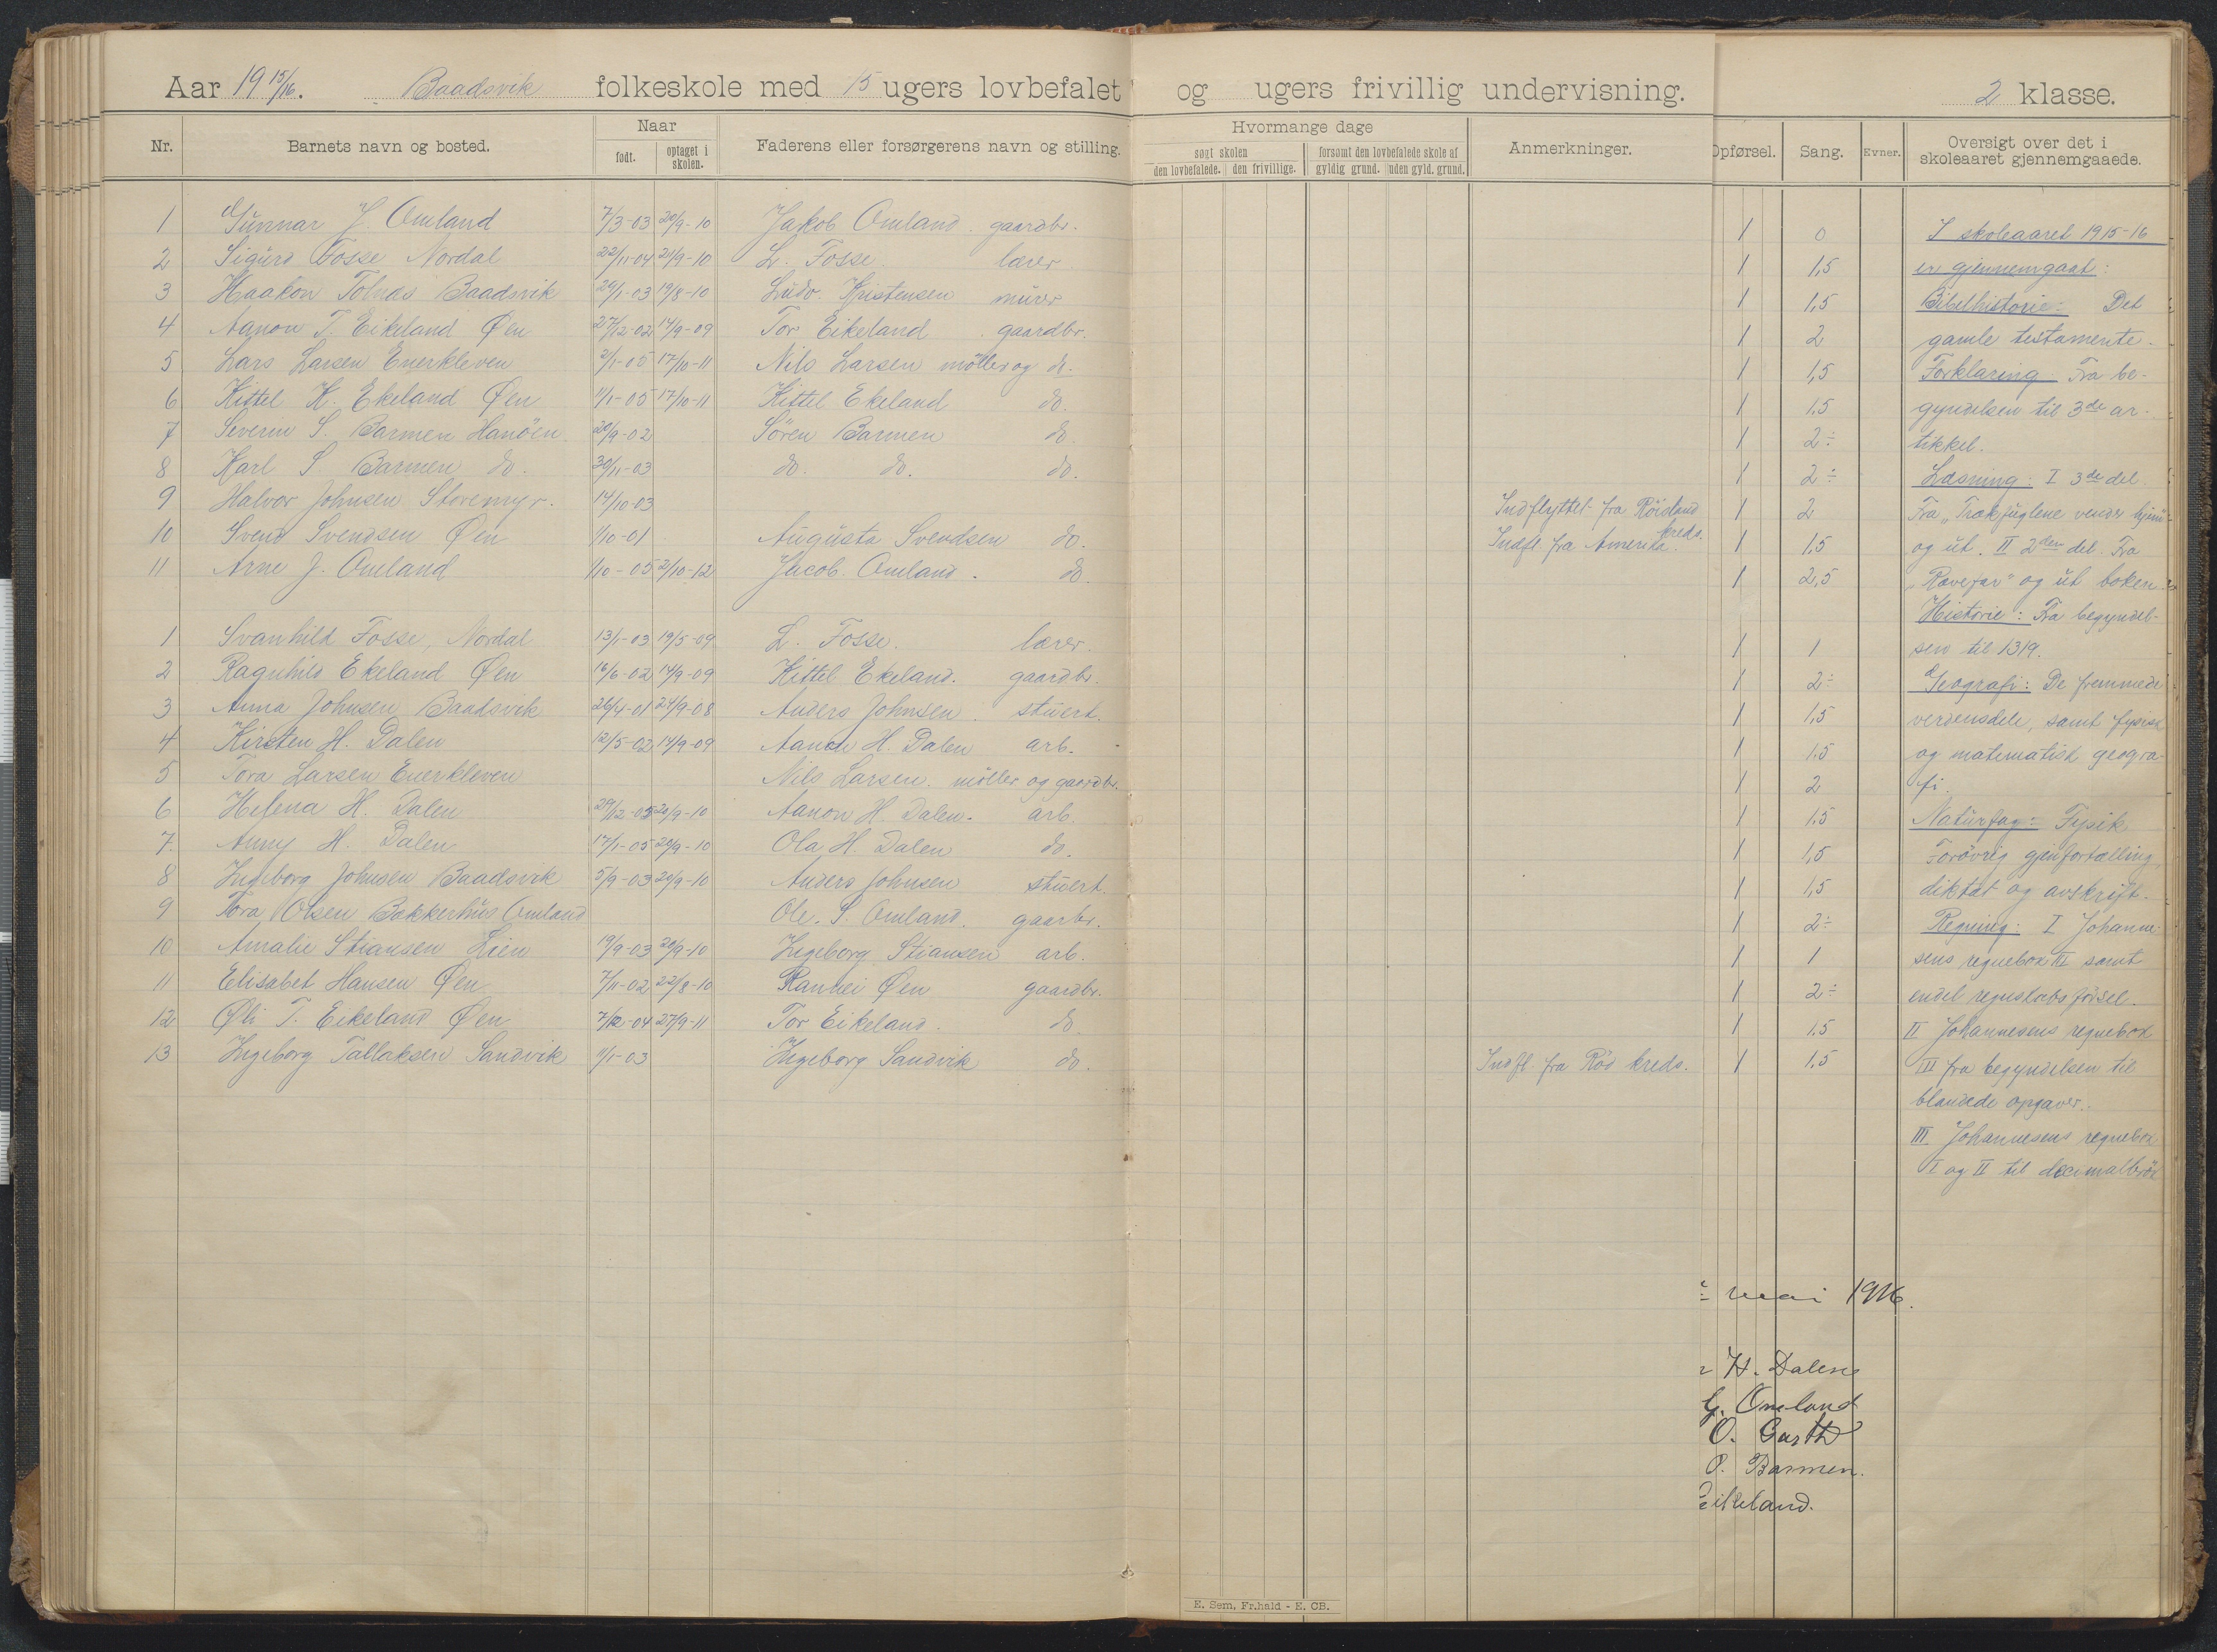 Aar 1915/16. Baadsvik folkeskole med 15 ugers lovbefalet og ugers frivillig undervisning. 2 klasse.
Nr. Barnets navn og bosted. Naar født. optaget i skolen. Faderens eller forsørgerens navn og stilling. Hvormange dage søgt skolen den lovbefalede. den frivillige. forsømt den lovbefalede skole af gyldig grund. uden gyld. grund. Anmerkninger. Opførsel. Sang. Evner. Oversigt over det i skoleaaret gjennemgaaede.
1 Gunnar J. Omland 7/3-03 20/9-10 Jakob Omland. gaardbr. 1 0 I skoleaaret 1915-16
2 Sigurd Fosse Nordal 22/11-04 20/9-10 L. Fosse lærer 1 1,5 er gjennemgaat:
3 Haakon Tolnæs Baadsvik 29/1-03 19/8-10 Ludv. Kristensen murer 1 1,5 Bibelhistorie: Det
4 Aanon T. Eikeland Øen 27/12-02 14/9-09 Tor Eikeland gaardbr. 1 2 gamle testamente.
5 Lars Larsen Enerkleven 2/1-05 17/10-11 Nils Larsen möller og do. 1 1,5 Forklaring Fra be-
6 Kittel K. Ekeland Øen 11/1-05 17/10-11 Kittel Ekeland do. 1 1,5 gyndelsen til 3de ar-
7 Severin S. Barmen Hanöen 20/9-02 Sören Barmen do. 1 2÷ tikkel.
8 Karl S. Barmen do. 30/11-03 do. do. do. 1 2÷ Læsning: I 3de del.
9 Halvor Johnsen Storemyr. 14/10-03 Indflyttet fra Röisland kreds. 1 2 Fra "Trækfuglene vender hjem"
10 Svend Svendsen Øen 1/10-01 Augusta Svendsen do. Indfl. fra Amerika. 1 1,5 og ut. II 2den del. Fra
11 Arne J. Omland 1/10-05 2/10-12 Jacob Omland. do. 1 2,5 "Rævefar" og ut boken.
Historie: Fra begyndel-
1 Svanhild Fosse, Nordal 13/1-03 19/5-09 L. Fosse. lærer. 1 1 sen til 1319.
2 Ragnhild Ekeland Øen 16/6-02 14/9-09 Kittel Ekeland. gaardbr. 1 2÷ Geografi: De fremmede
3 Anna Johnsen Baadsvik 26/4-01 24/9-08 Anders Johnsen. stuert. 1 1,5 verdensdele, samt fysisk
4 Kirsten H. Dalen 12/5-02 14/9-09 Aanon H. Dalen arb. 1 1.5 og matematisk geogra-
5 Tora Larsen Enerkleven Nils Larsen. möller og gaardbr. 1 2 fi.
6 Helena H. Dalen 29/12-03 20/9-10 Aanon H. Dalen. arb. 1 1.5 Naturfag: Fysik
7. Anny H. Dalen 17/1-05 20/9-10 Ola H. Dalen do. 1 1,5 Forövrig gjenfortælling,
8 Ingeborg Johnsen Baadsvik 5/9-03 20/9-10 Anders Johnsen stuert. 1 1,5 diktat og avskrift.
9 Tora Olsen Bakkerhus Omland Ole. S. Omland. gaarbr. 1 2÷ Regning: I Johanne-
10 Amalie Stiansen Lien 19/9-03 20/9-10 Ingeborg Stiansen arb. 1 1 sens regnebok IV samt
11 Elisabet Hansen Øen 7/11-02 22/8-10 Ranhei Øen gaardbr. 1 2÷ endel regnskabsförsel.
12 Oli T. Eikeland Øen 7/12-04 27/9-11 Tor Eikeland. do. 1 1.5 II Johannesens regnebok
13 Ingeborg Tallaksen Sandvik 11/1-03 Ingeborg Sandvik do. Indfl. fra Röd kreds. 1 1.5 III fra begyndelsen til
blandede opgaver.
III. Johannesens regnebok
I og II til decimalbrök
mai 1916.
H. Dalene
G. Omland
O. Garth
P. Barmen.
Eikeland.
E. Sem, Fr.hald - E. CB.